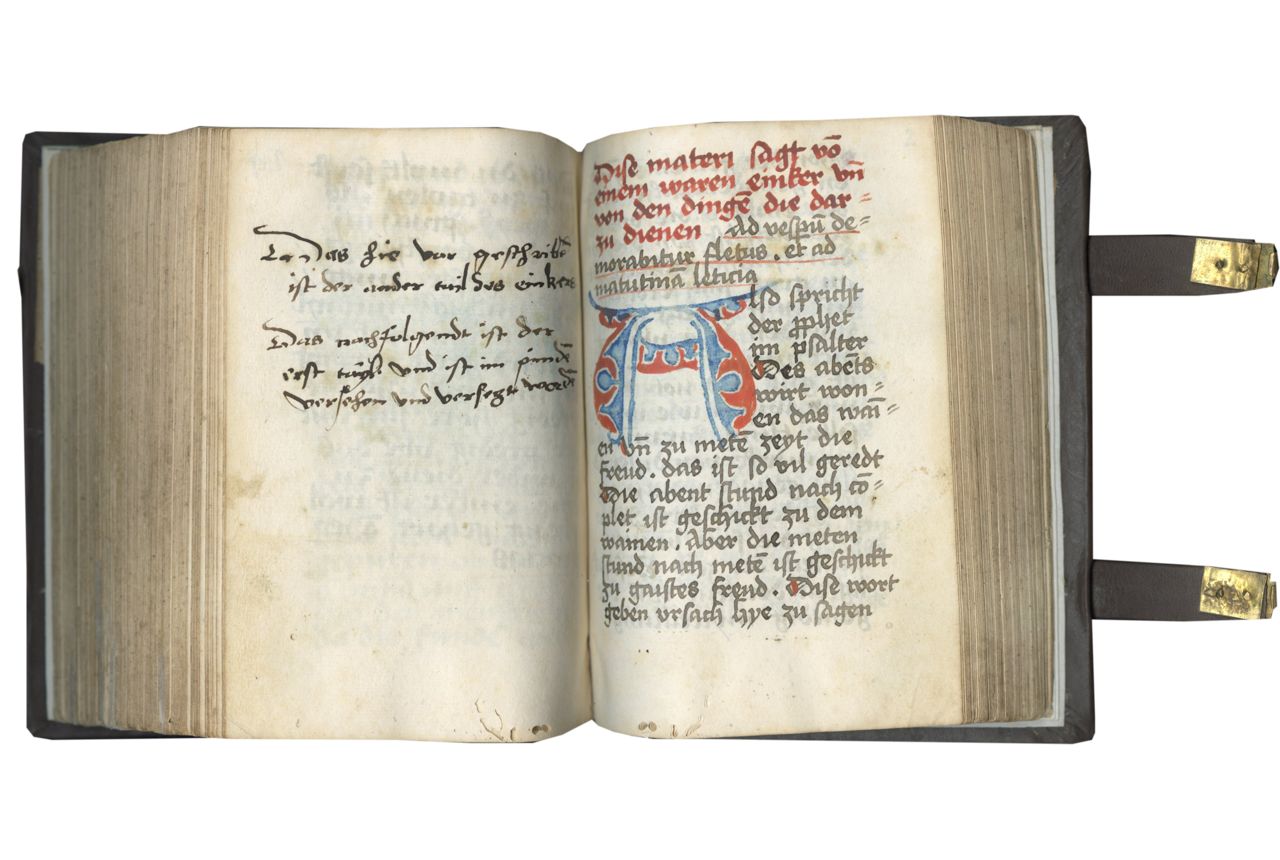 Das hie vor geschribē
ist der ander tail des einkers
Das nachfolgendt ist der
erst tayl vnd ist im pindē
versehen vnd versezt wordē
Dise materi sagt vō
einem waren einker vn̄
von den dingē die dar=
zu dienen Ad vesꝑū de=
morabitur fletus . et ad
matutinā leticia
Alsd spricht
der ꝓphet
im psalter
Des abēts
wirt won=
en das wai=
en vn̄ zu metē zeyt die
freud . das ist so vil geredt
Die abent stund nach cō=
plet ist geschickt zu dem
wainen . Aber die meten
stund nach metē ist geschickt
zu gaistes freud . Dise wort
geben vrsach hye zu sagen